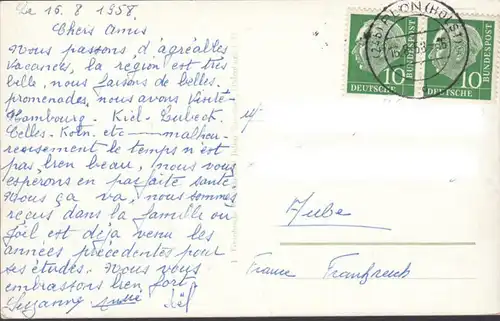 Le 16.8.1958.
Chers Amis
Nous passons d'agréables
vacances, la région est très
belle, nous faisons de belles
promenades, nous avons visité
Hambourg - Kiel - Lubeck.
Celles. Koln. etc — malheu-
reusement le temps n'est
pas bien beau, nous vous
espérons en parfaite santé
Nous ça va, nous sommes
reçus dans la famille ou
Joël est déjà venu les
années précédentes pour
ses études. Nous vous
embrassons bien fort
Suzanne André Joël
10 10
DEUTSCHE DEUTSCHE
BUNDESPOST BUNDESPOST
(HOLST)
Aube
France Frankreich